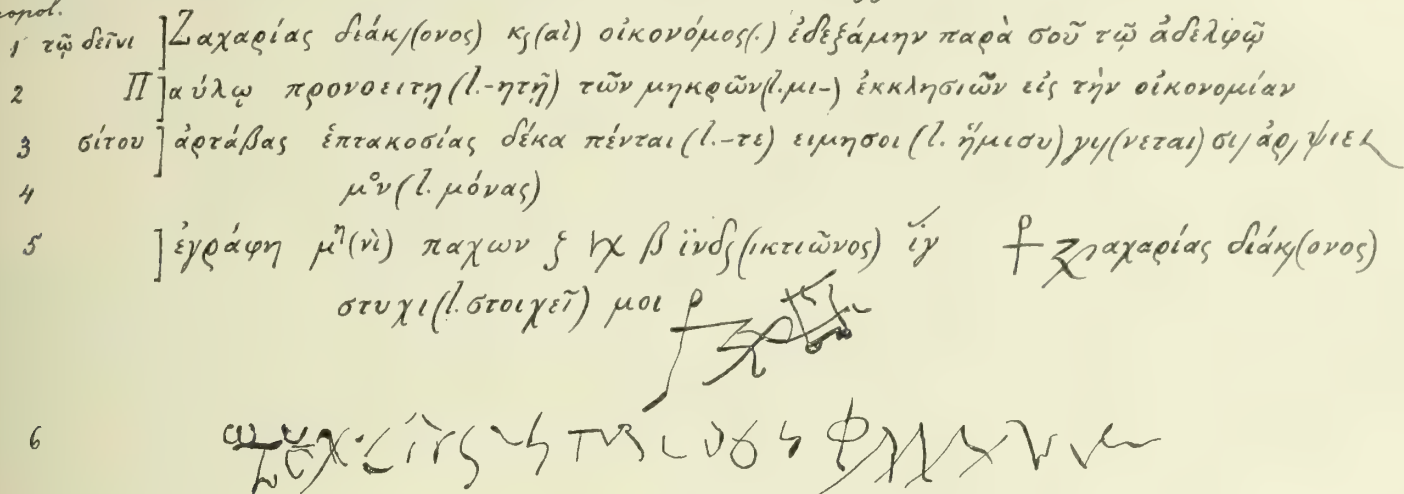 opol.
1 τῷ δεῖνι ] Ζαχαρίας διάκ/(ονος) κς(αὶ) οἰκονόμος(.) ἐδεξάμην παρὰ σοῦ τῷ ἀδελφῷ
2 Π]αύλῳ προνοειτῃ (l.-ητῇ) τῶν μηκρῶν(l.μι-) ἐκκλησιῶν εἰς τὴν οἰκονομίαν
3 σίτου ] ἀρτάβας ἑπτακοσίας δέκα πένται (l.-τε) ειμησοι (l. ἥμισυ) γι/(νεται) σι/ ἀρ/ ψιε
4 μον (l. μόνας)
5 ] ἐγράφη μη(νὶ) παχων β ϊνδς(ικτιῶνος) ϊγ ζαχαρίας διάκ/(ονος)
στυχι(l.στοιχεῖ) μοι
6